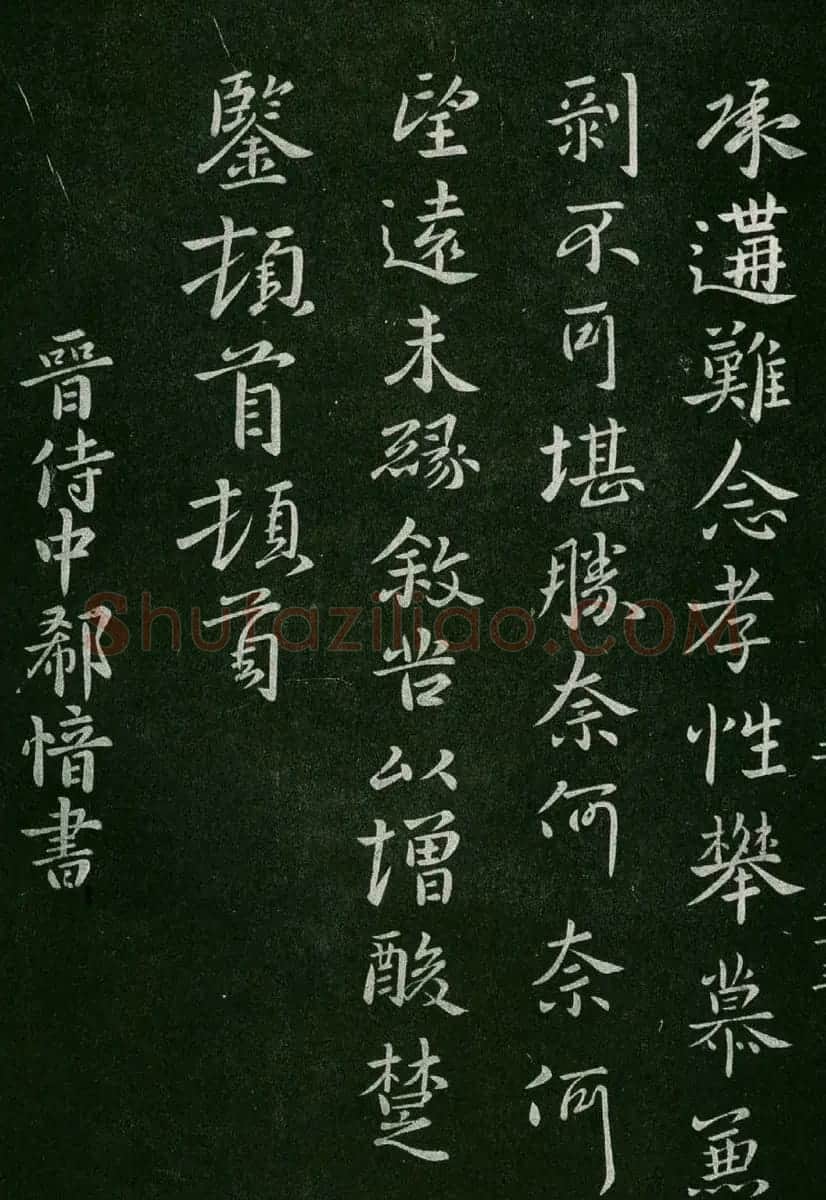 承遘難念孝性攀慕兼
剥不可堪勝奈何奈何
望遠未緣敘苦以增酸楚
鑒頓首頓首
晉侍中郗愔書
Shufaziliao.COM